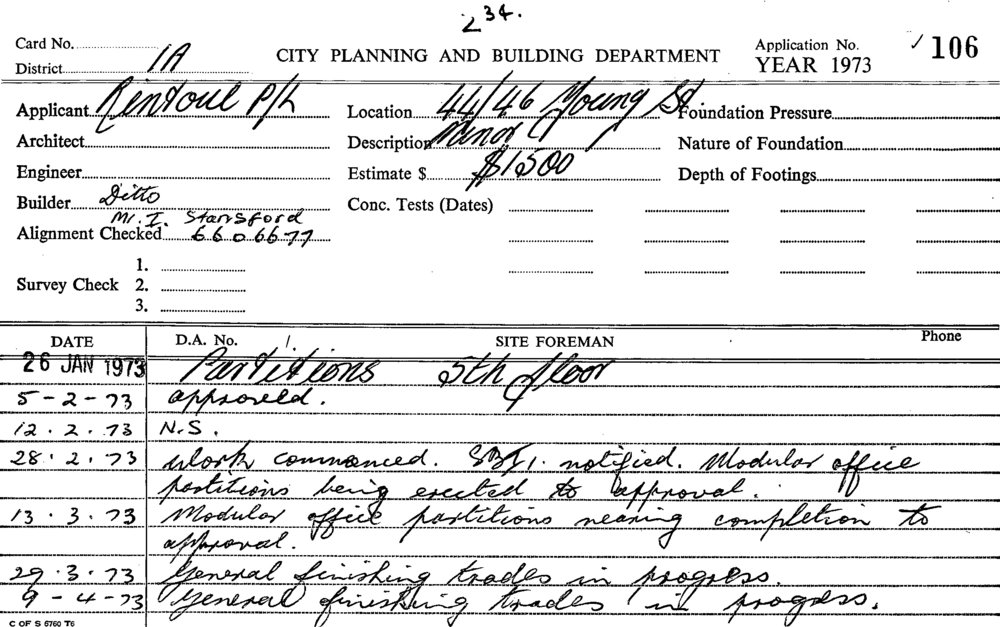 234.
Card No.
District 1A
CITY PLANNING AND BUILDING DEPARTMENT
Application No. ✓ 106
YEAR 1973
Applicant Rintoul P/L
Location 44/46 Young St.
Foundation Pressure
Architect
Description Minor
Nature of Foundation
Engineer
Estimate $ $1500
Depth of Footings
Builder Ditto
Conc. Tests (Dates)
Mr. I. Stansford
Alignment Checked 6606677
1.
Survey Check 2.
3.
DATE D.A. No. /. SITE FOREMAN Phone
26 JAN 1973 Partitions 5th floor
5-2-73 approved.
12.2.73 N.S.
28.2.73 Work commenced. notified. Modular office
partitions being erected to approval.
13.3.73 Modular office partitions nearing completion to
approval.
29.3.73 General finishing trades in progress.
9-4-73 General finishing trades in progress.
C OF S 6760 T6